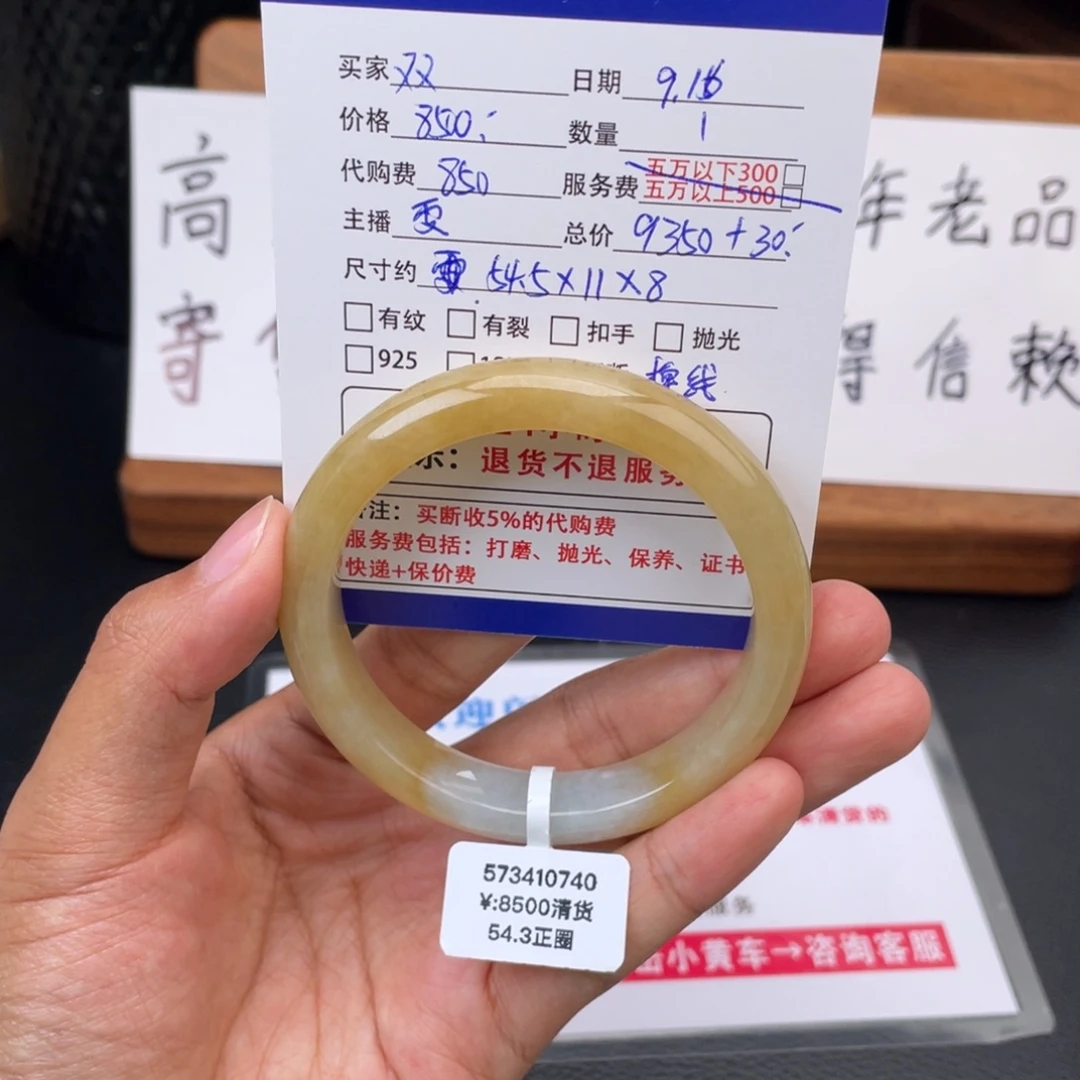 买家 双 日期 9.16
价格 8500.- 数量 1
代购费 850 服务费 五万以下300 五万以上500
主播 雯 总价 9350+30.-
尺寸约 54.5×11×8
有纹 有裂 扣手 抛光
925
示：退货不退服务
注：买断收5%的代购费
服务费包括：打磨、抛光、保养、证书
快递+保价费
高 年老品
寄 得信赖
迎
清货的
服务
击小黄车→咨询客服
573410740
¥:8500清货
54.3正圈